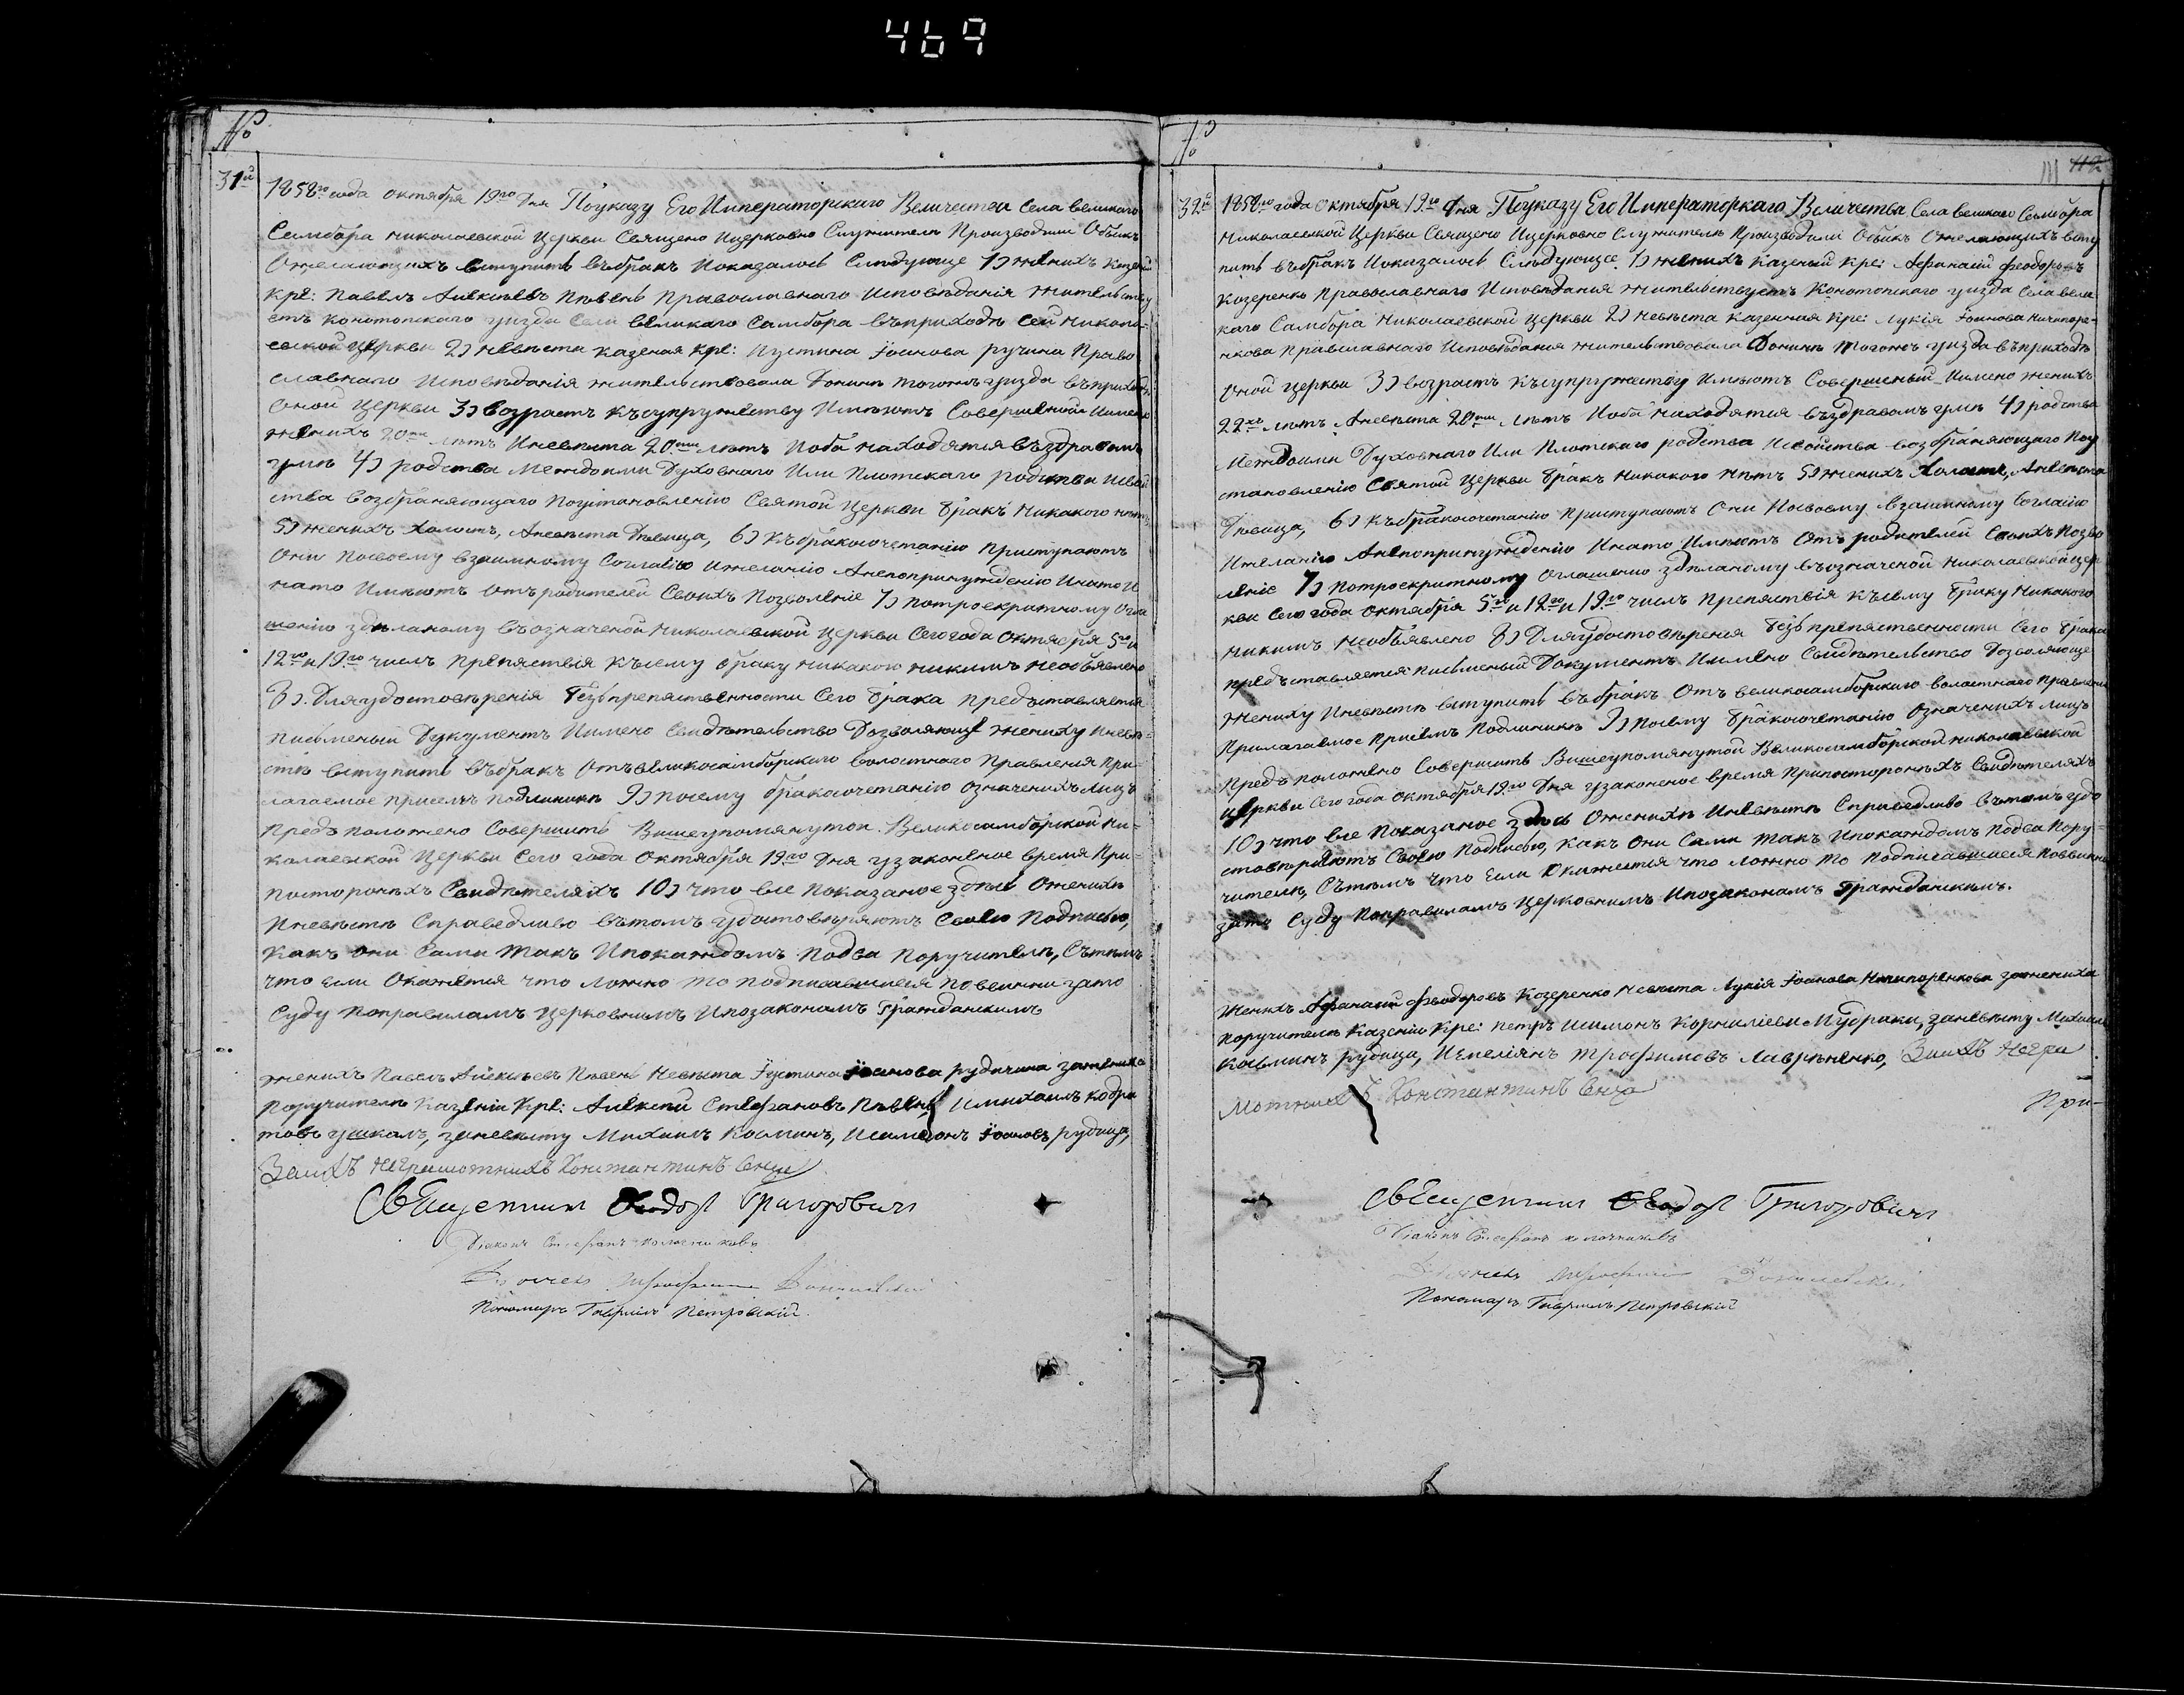 469
№
31й
1858го года октября 19го Дня Поуказу Его Императорскаго Величества Села великого
Самбора Николаевской Церкви Священо Ицерковно Служители Производили Обыкъ
Ожелающихъ вступить въбракъ Иоказалось Следующе 1) женихъ Казеный
Кре: Павелъ Алексѣевъ Пѣвень Православнаго Исповѣданія Жительству
етъ Конотопскаго уизда Села великаго Самбора въприходѣ сей Никола-
евской Церкви 2) Невѣста казеная Кре: Иустина Іоанова Право
славнаго Исповѣданія жительствовала Донинѣ тогожъ уизда въприходѣ
Оной Церкви 3) Возрастъ късупружеству Имѣютъ Совершеной Именно
Женихъ 20ти лѣтъ Иневѣста 20ти лѣтъ Иоба находятся въздравомъ
умѣ 4) родства Междоими Духовнаго Или Плотскаго родства Исвой
ства возбраняющаго Поустановленію Святой Церкви бракъ Никакого нѣтъ
5) женихъ Холостъ, Аневѣста Дѣвица, 6) Къбракосочетанію Приступаютъ
Они Посвоему взаимному Согласію ижеланію Анепопринужденію Инато И
нато Имѣютъ Отъродителей Своихъ Позволеніе 7) Потроекратному Огла
шенію здѣланому въозначеной Николаевской Церкви Сего года Октября 5го и
12го и 19го числъ Препятствія Късему браку никакого никимъ необъявлено
8) Дляудостовѣренія безпрепятственности Сего брака Представляется
Письменый Документъ Имено Свидѣтельство Дозволяюще жениху Иневѣ-
стѣ вступить въбракъ Отъвеликосамборскаго волостнаго Правленія При-
лагаемое присемъ подлиникъ 9) посему бракосочетанію означенихълицъ
Предположено Совершить Вишеупомянутой Великосамборской Ни-
колаевской Церкви Сего года Октября 19го Дня узаконеное время При
посторонъхъ Свидѣтеляхъ 10) что все Показаное здѣсь Оженихѣ
Иневѣстѣ Справедливо вътомъ удостовѣряютъ Своею Подписью,
Какъ они Сами такъ Ипокаждомъ Подва Поручителѣ, Сътѣмъ
что если Окажется что ложно то подписавшиеся повинни зато
Суду Поправиламъ Церковнимъ Ипозаконамъ Гражданскимъ
женихъ Павелъ Алексѣевъ Пѣвень Невѣста Іустина Іоанова зажениха
Поручители Казеніи Кре: Алексѣй Стефановъ Пѣвень Имихаилъ
заневѣсту Михаилъ Косминъ, Исимеонъ Іоановъ рудица,
Заихъ Неграмотнихъ Константинъ
Священникъ Феодоръ Григоровичъ
Діаконъ Стефанъ
Дьячекъ Трофимъ
Пономарь Гавріилъ Петровскій.
№
111 112
32й
1858го года октября 19го Дня Поуказу Его Императоркаго Величества Села великого Самбора
Николаевской Церкви Священо Ицерковно Служители Производили Обыкъ Ожелающихъ всту
пить въбракъ Иоказалось Слѣдующее. 1) женихъ Казеный Кре: Афанасій Феодоровъ
Козеренко Православнаго Исповѣданія жительствуетъ Конотопскаго уизда Села вели
каго Самбора Николаевской Церкви 2) Невѣста Казенная Кре: Лукія Іоанова Ничипоре-
нкова Православнаго Исповѣданія жительствовала Донинѣ Тогожъ уизда въприходѣ
Оной Церкви 3) возрастъ късупружеству Имѣютъ Совершеный Имено женихъ
22хъ лѣтъ, Аневѣста 20ти лѣтъ Иоба находятся въздравомъ умѣ 4) родства
Междоими Духовнаго Или Плотскаго родства Исвойства возбраняющаго Поу
становленію Святой Церкви бракъ Никакого нѣтъ 5) женихъ Холостъ, Аневѣста
Дѣвица, 6) Къбракосочетанію приступаютъ Они Посвоему взаимному Согласію
Ижеланію Анепопринужденію Инато Имѣютъ Отъ родителей Своихъ Позво
леніе 7) Потроекритному Оглашенію здѣланому въозначеной Николаевской Цер
кви Сего года Октября 5го и 12го и 19го числъ Препятствія късему браку Никакого
никимъ необъявлено 8) Дляудостовѣренія безпрепятственности Сего брака
представляется письменый Документъ Имено Свидѣтельство Дозволяюще
жениху Иневѣстѣ вступить въбракъ Отъ великосамборскаго волостнаго Правленія
Прилагаемое Присемъ Подлиникъ 9) Посему бракосочетанію Означенихъ лицъ
Предположено Совершить Вишеупомянутой Великосамборской Николаевской
церкви Сего года октября 19го Дня узаконеное время Припосторонъхъ Свидѣтеляхъ
10) что все Показаное здѣсь Оженихѣ Иневѣстѣ Справедливо вътомъ удо
стовѣряютъ Своею Подписью, Какъ Они Сами такъ Ипокаждомъ Подва Пору-
чителѣ, Сътѣмъ что Если Окажется что ложно то Подписавшиеся Повинни
зато Суду Поправиламъ Церковнимъ Ипозаконамъ Гражданскимъ.
Женихъ Афанасій Феодоровъ Козеренко Невѣста Лукія Іоанова Ничипоренкова зажениха
поручители Казеніи Кре: Петръ Исимонъ Корниліеви Мудраки, заневѣсту Михаилъ
Косминъ рудица, Иемеліянъ Трофимовъ Лавриненко, Заихъ Негра
мотнихъ Константинъ
При-
Священникъ Феодоръ Григоровичъ
Діаконъ Стефанъ
Дьячекъ Трофимъ
Пономарь Гавріилъ Петровскій